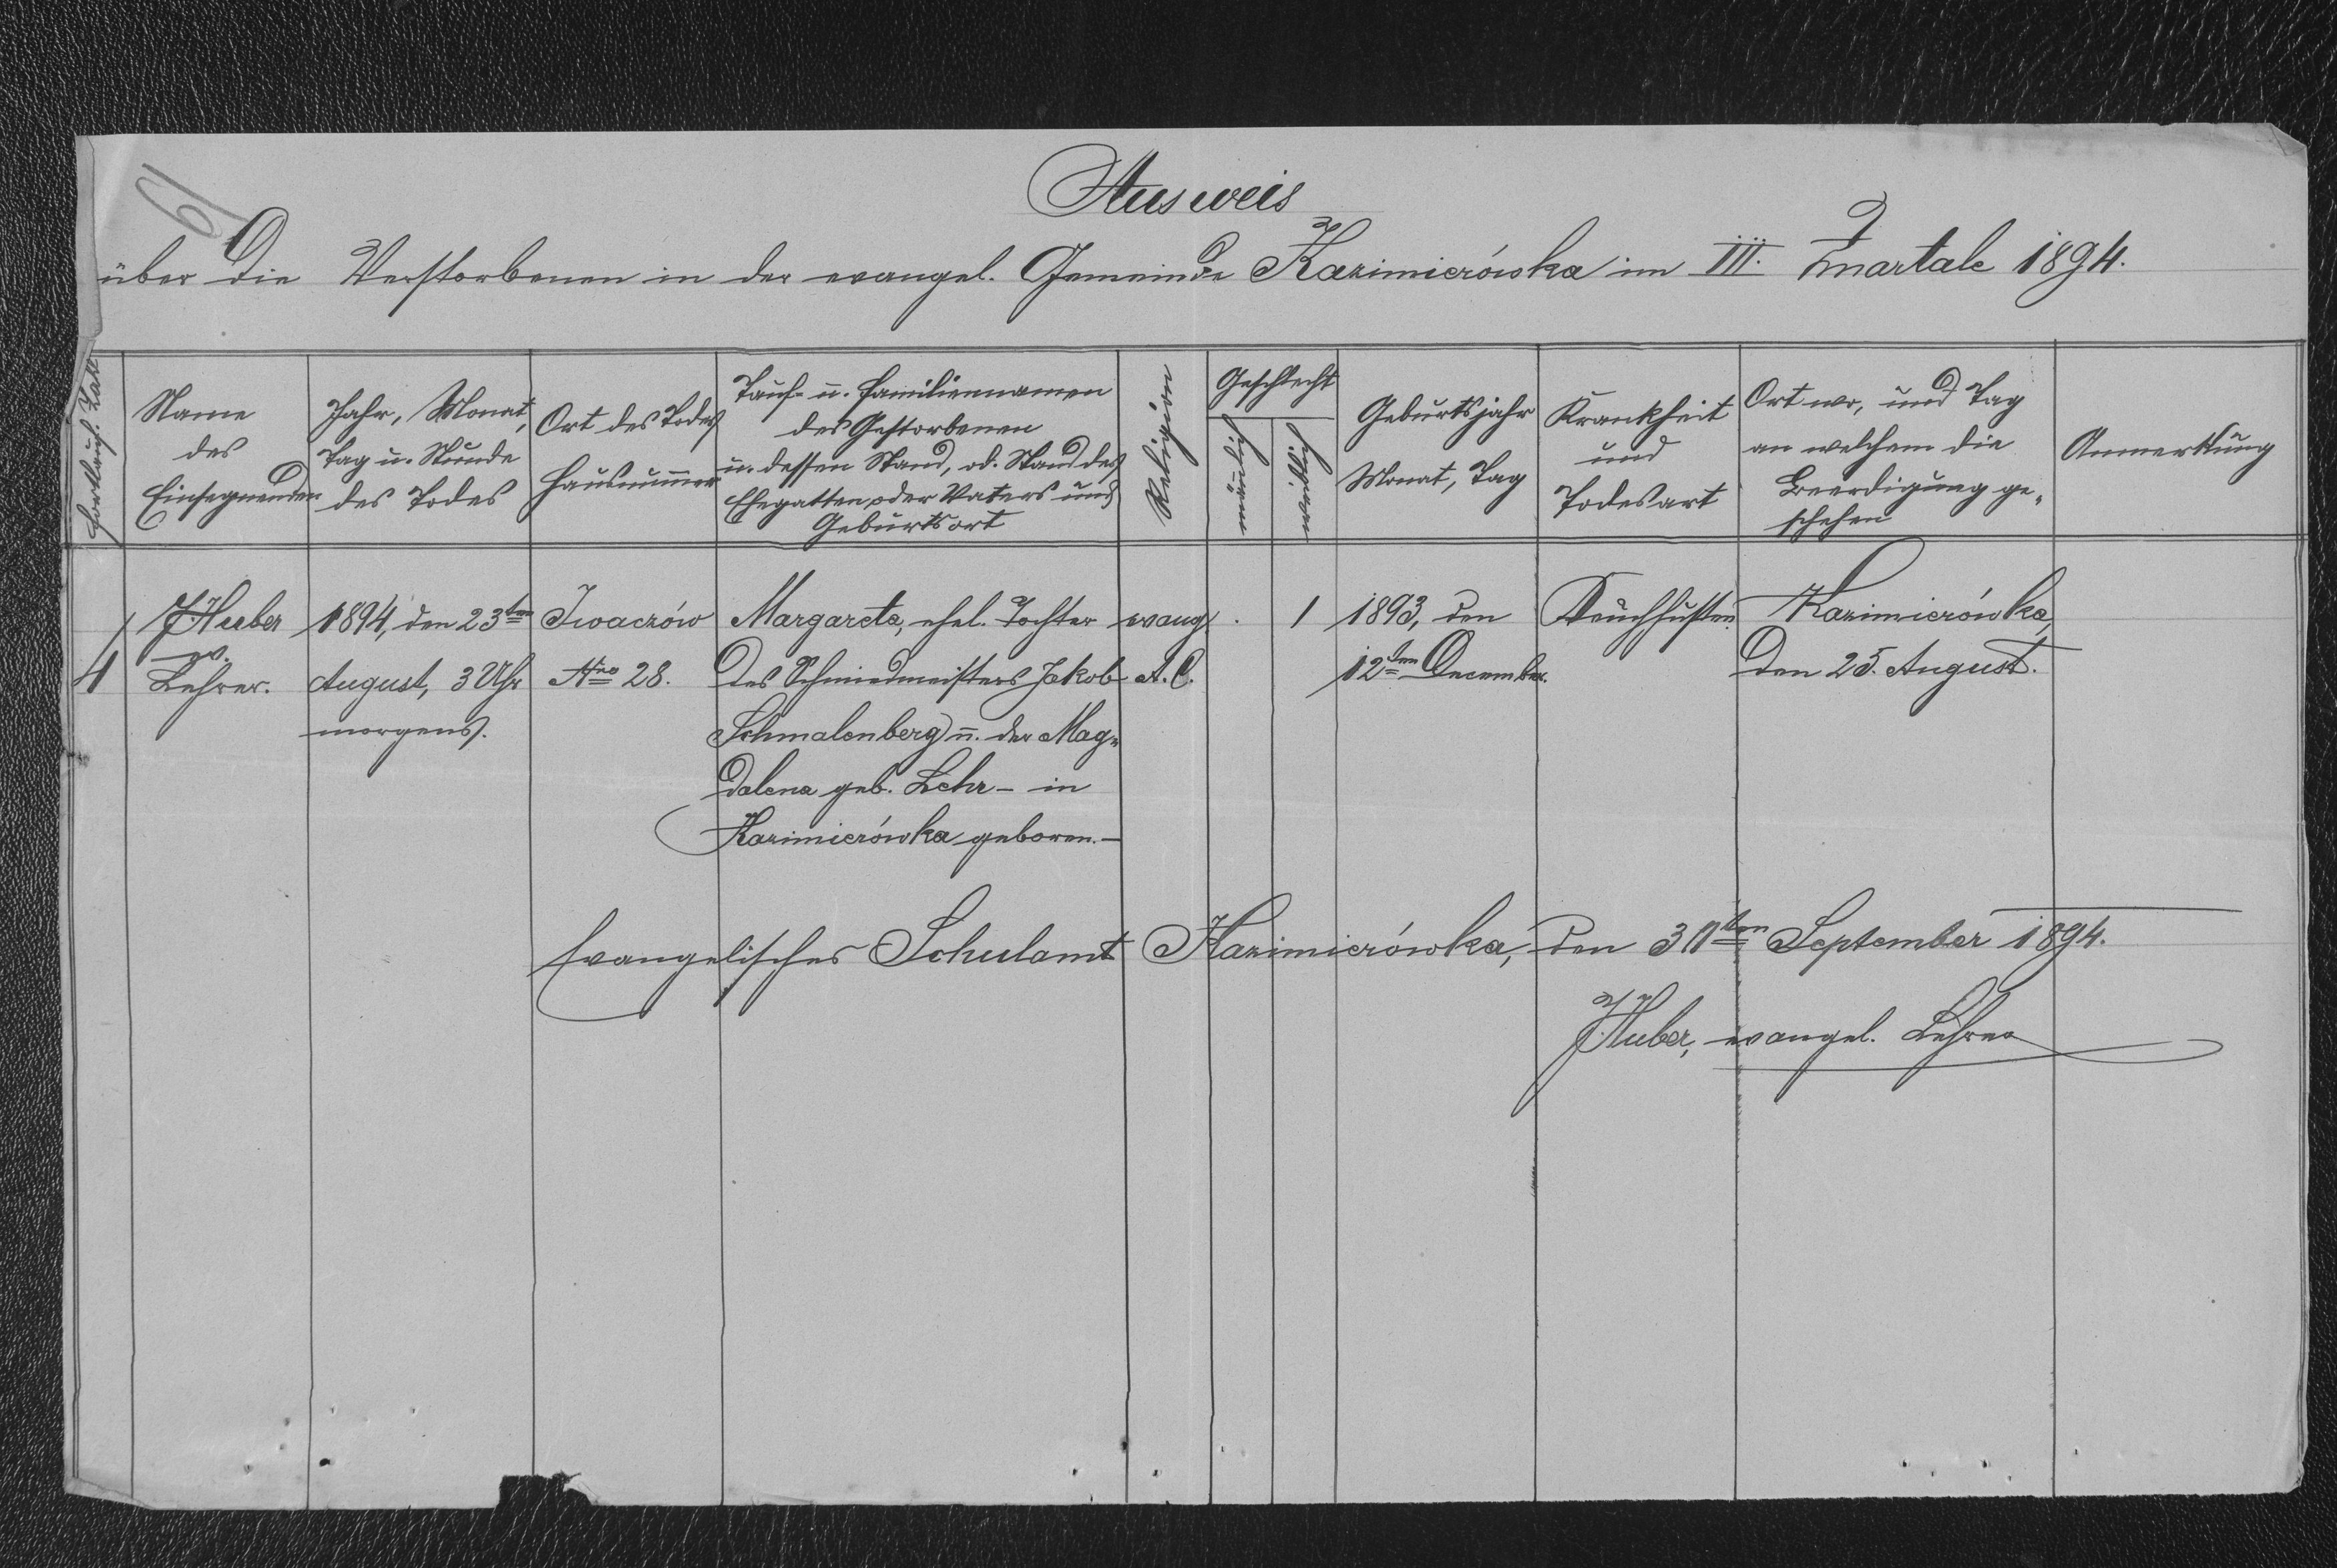 61
Ausweis
über die Verstorbenen in der evangel. Gemeinde Kazimierówka im III. Quartale 1894.
Fortlauf. Zahl
Name
des
Einsegnenden
Jahr, Monat,
Tag u. Stunde
des Todes
Ort des Todes
Hausnummer
Tauf- u. Familiennamen
des Gestorbenen
u. dessen Stand, od. Stand des
Ehegatten, oder Vaters und
Geburtsort
Religion
Geschlecht
männlich
weiblich
Geburtsjahr
Monat, Tag
Krankheit
und
Todesart
Ort wo, und Tag
an welchem die
Beerdigung ge-
schehen
Anmerkung
4
J. Huber
ev.
Lehrer.
1894, den 23ten
August, 3 Uhr
morgens.
Iwaczów
Nro 28.
Margareta, ehel. Tochter
des Schmiedmeisters Jakob
Schmalenberg u. der Mag-
dalena geb. Lehr - in
Kazimierówka geboren. -
evang.
A. C.
.
1
1893, den
12ten December.
Keuchhusten.
Kazimierówka,
den 25. August.
Evangelisches Schulamt Kazimierówka, den 30ten September 1894.
J. Huber, evangel. Lehrer